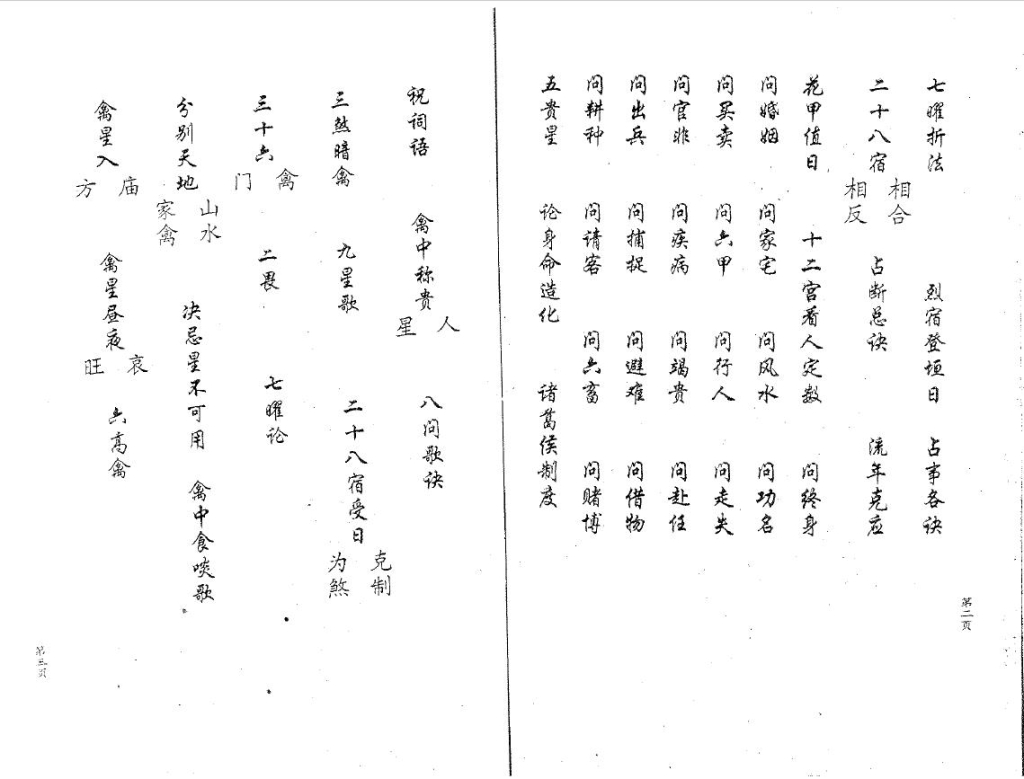 七曜折法 烈宿登垣日 占事各诀
二十八宿相合相反 占断总诀 流年克应
花甲值日 十二宫看人定数 问终身
问婚姻 问家宅 问风水 问功名
问买卖 问六甲 问行人 问走失
问官非 问疾病 问谒贵 问赴任
问出兵 问捕捉 问避难 问借物
问耕种 问请客 问六畜 问赌博
五贵星 论身命造化 诸葛侯制度
第二页
祝词语 禽中称贵人星 八问歌诀
三煞暗禽 九星歌 二十八宿受日克制为煞
三十六禽门 二畏 七曜论
分别天地山水家禽 决忌星不可用 禽中食啖歌
禽星入庙方 禽星昼夜哀旺 六高禽
第三页